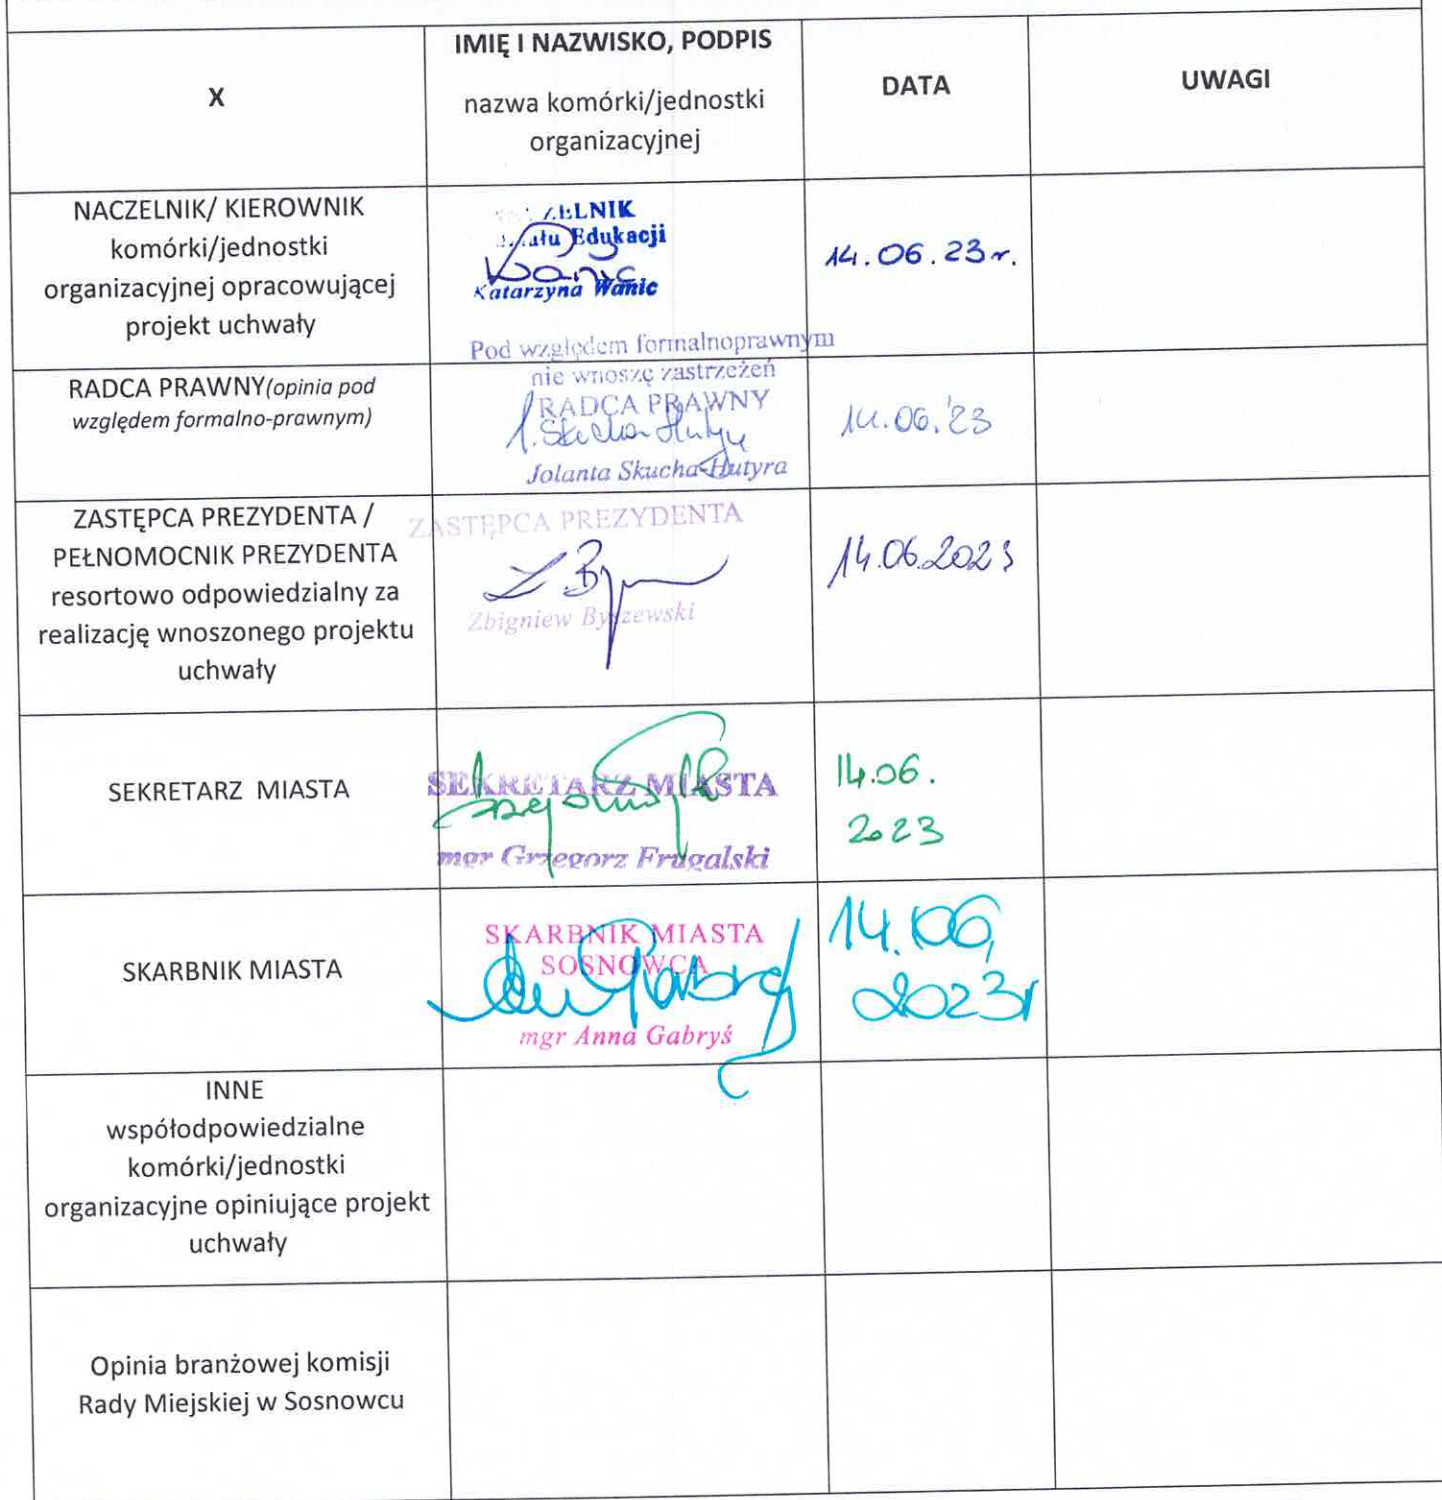 X
IMIĘ I NAZWISKO, PODPIS
nazwa komórki/jednostki
organizacyjnej
DATA
UWAGI
NACZELNIK/ KIEROWNIK
komórki/jednostki
organizacyjnej opracowującej
projekt uchwały
ZELNIK
ału Edukacji
Wanic
Katarzyna Wanic
14.06.23r.
RADCA PRAWNY(opinia pod
względem formalno-prawnym)
Pod względem formalnoprawnym
nie wnoszę zastrzeżeń
RADCA PRAWNY
Jolanta Skucha-Hutyra
14.06.'23
ZASTĘPCA PREZYDENTA /
PEŁNOMOCNIK PREZYDENTA
resortowo odpowiedzialny za
realizację wnoszonego projektu
uchwały
ZASTĘPCA PREZYDENTA
Zbigniew Byszewski
14.06.2023
SEKRETARZ MIASTA
SEKRETARZ MIASTA
mgr Grzegorz Frugalski
14.06.
2023
SKARBNIK MIASTA
SKARBNIK MIASTA
SOSNOWCA
mgr Anna Gabryś
14.06,
2023r
INNE
współodpowiedzialne
komórki/jednostki
organizacyjne opiniujące projekt
uchwały
Opinia branżowej komisji
Rady Miejskiej w Sosnowcu